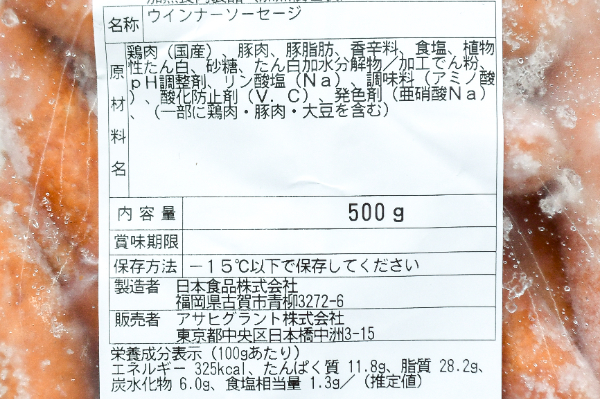 名称 ウインナーソーセージ
原材料名 鶏肉（国産）、豚肉、豚脂肪、香辛料、食塩、植物
性たん白、砂糖、たん白加水分解物／加工でん粉、
ｐＨ調整剤、リン酸塩（Ｎａ）、調味料（アミノ酸
）、酸化防止剤（Ｖ．Ｃ）、発色剤（亜硝酸Ｎａ）
、（一部に鶏肉・豚肉・大豆を含む）
内容量 500ｇ
賞味期限
保存方法 －１５℃以下で保存してください
製造者 日本食品株式会社
福岡県古賀市青柳3272-6
販売者 アサヒグラント株式会社
東京都中央区日本橋中洲3-15
栄養成分表示（100gあたり）
エネルギー 325kcal、たんぱく質 11.8g、脂質 28.2g、
炭水化物 6.0g、食塩相当量 1.3g／（推定値）